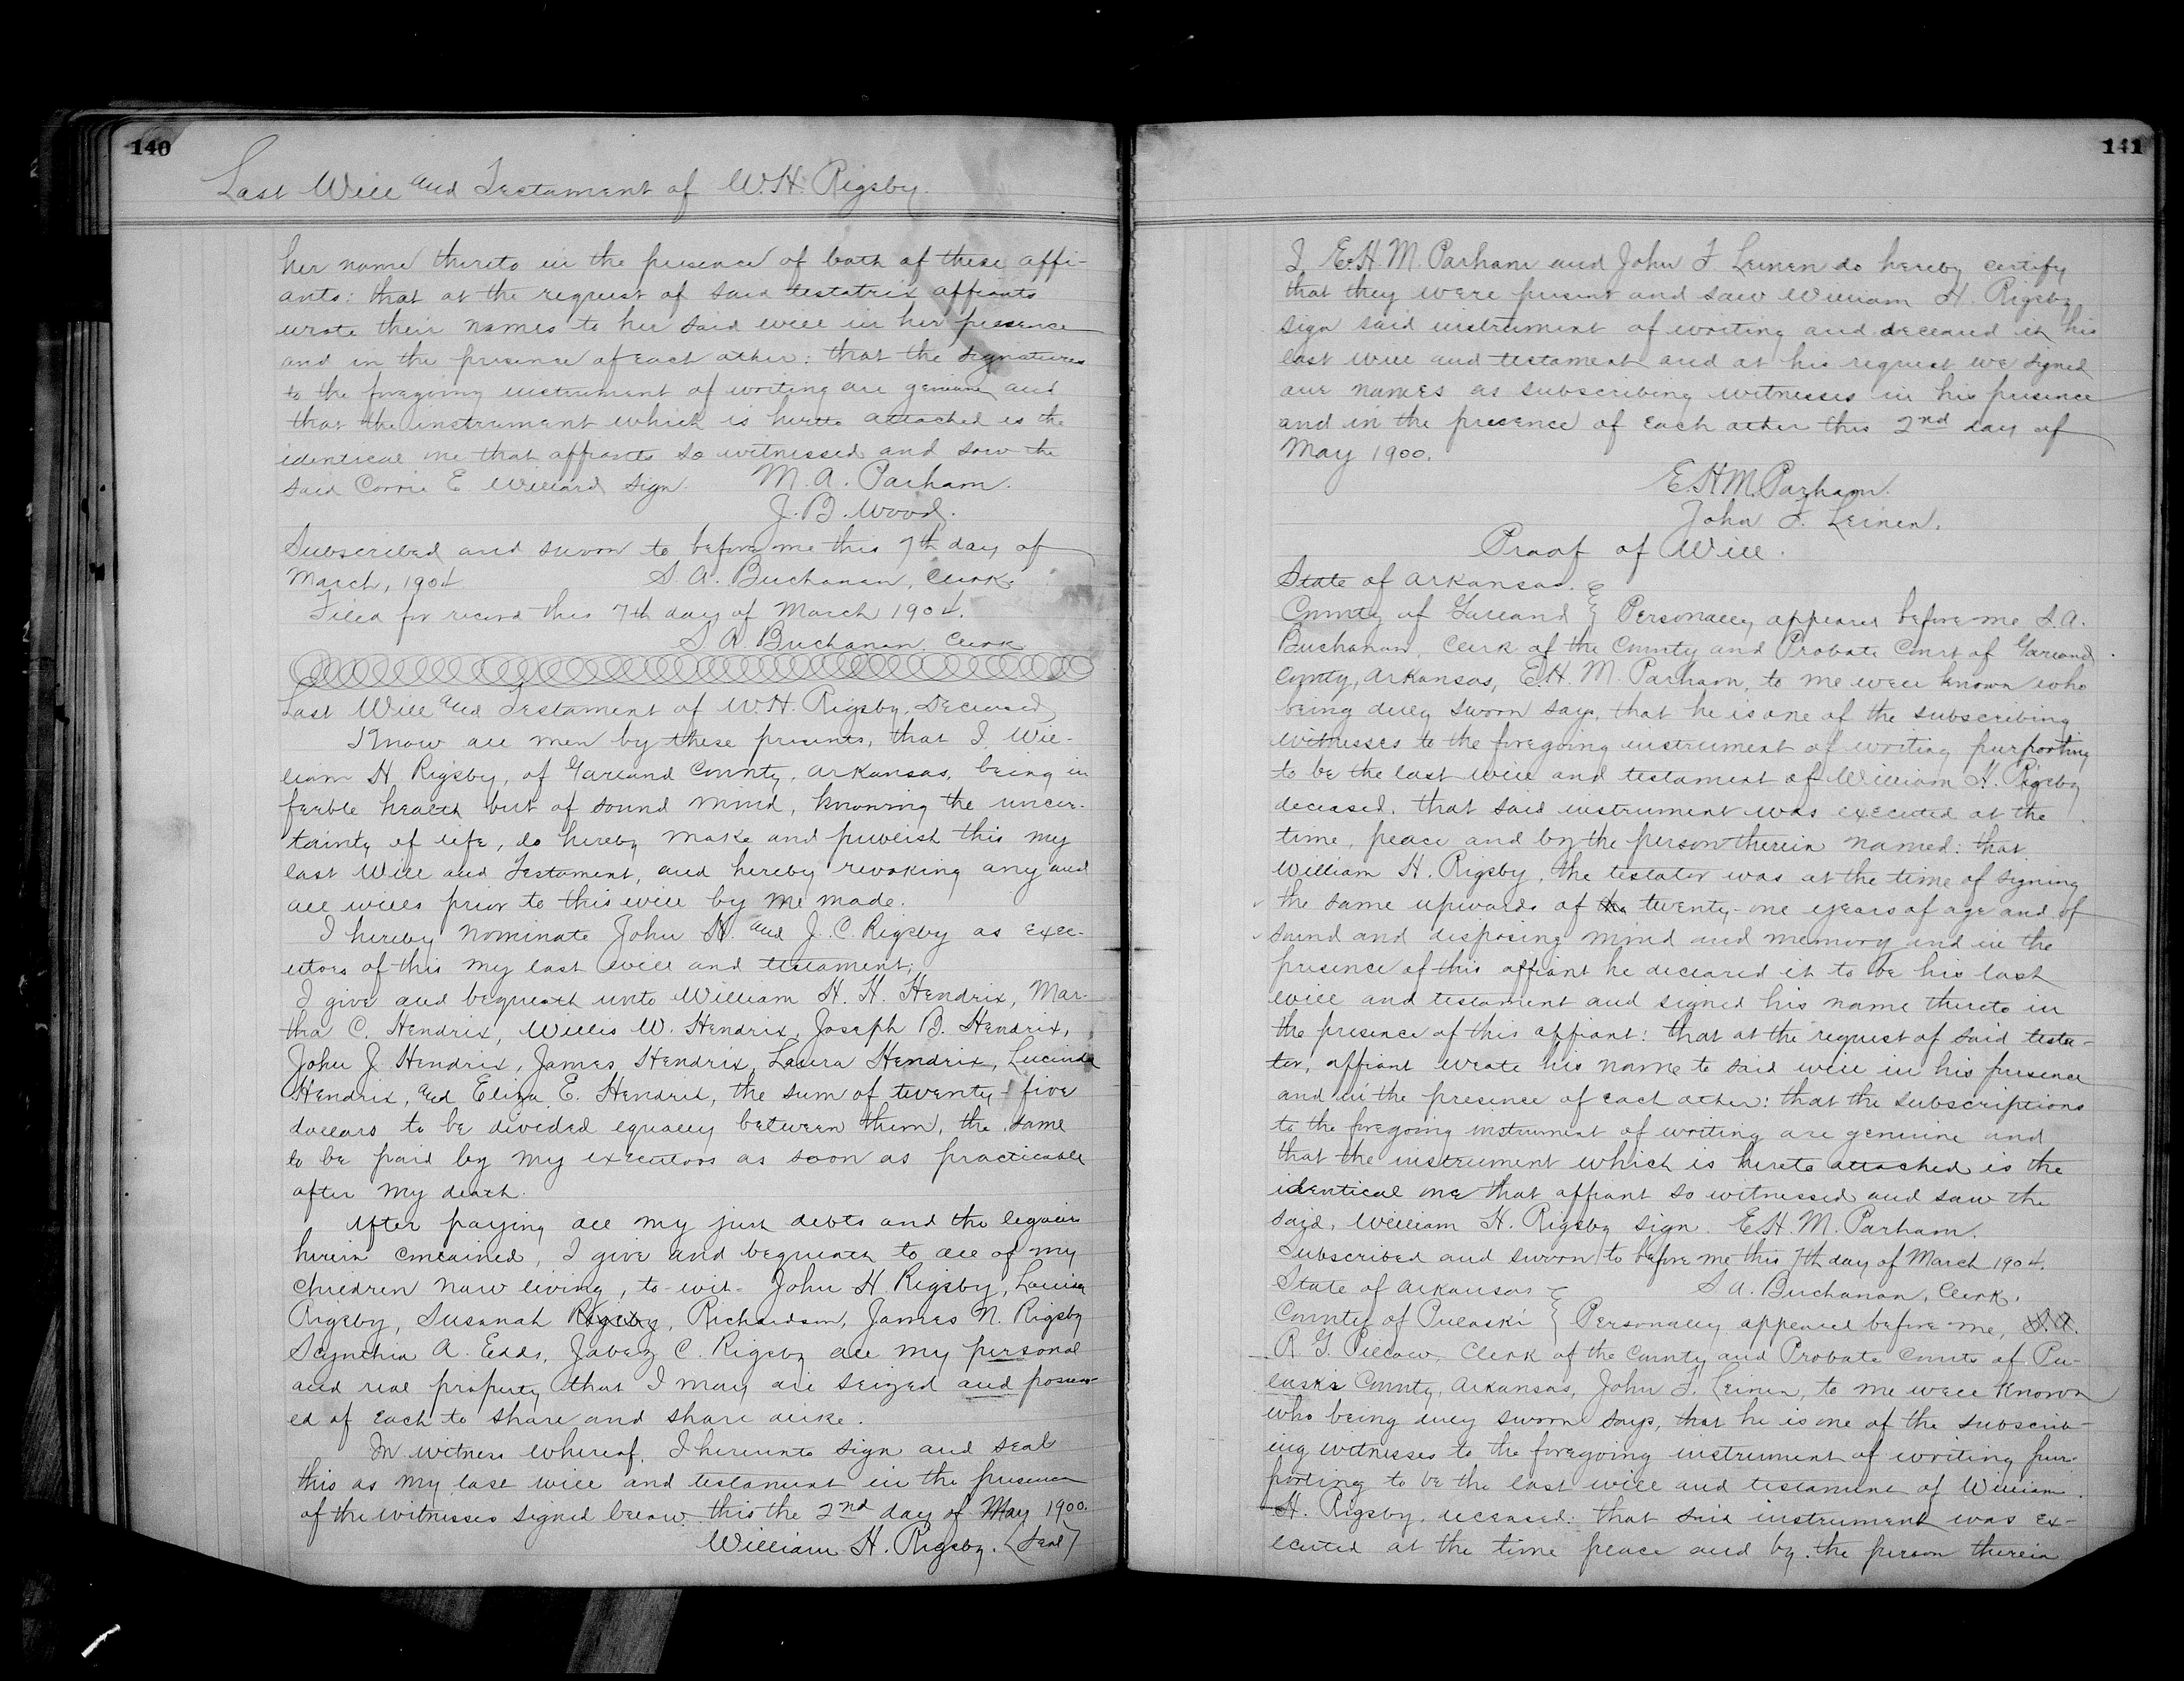 140
Last Will and Testament of W. H. Rigsby.
her name thereto in the presence of both of these affi-
ants: that at the request of said testatrix affiants
wrote their names to her said will in her presence
and in the presence of each other: that the signatures
to the foregoing instrument of writing are genuine and
that the instrument which is hereto attached is the
identical one that affiants so witnessed and saw the
said Corrie E. Willard sign. M. A. Parham.
J. B. Wood.
Subscribed and sworn to before me this 7th day of
March, 1904. S. A. Buchanan, Clerk.
Filed for record this 7th day of March 1904.
S. A. Buchanan, Clerk
Last Will and Testament of W. H. Rigsby, Deceased
Know all men by these presents, that I Wil-
liam H Rigsby, of Garland County, Arkansas, being in
feeble health but of sound mind, knowing the uncer-
tainty of life, do hereby make and publish this my
last Will and Testament, and hereby revoking any and
all wills prior to this will by me made.
I hereby nominate John H. and J. C. Rigsby as exec-
utors of this my last will and testament;
I give and bequeath unto William H. H. Hendrix, Mar-
tha C. Hendrix, Willis W. Hendrix, Joseph B. Hendrix,
John J. Hendrix, James Hendrix, Laura Hendrix, Lucinda
Hendrix, and Eliza E. Hendrix, the sum of twenty-five
dollars to be divided equally between them, the same
to be paid by my executors as soon as practicable
after my death.
After paying all my just debts and the legacies
herein contained, I give and bequeath to all of my
children now living, to-wit- John H. Rigsby, Louisa
Rigsby, Susanah Rigsby, Richardson, James N. Rigsby
Scynthia A. Edds, Jabez C. Rigsby all my personal
and real property that I may die seized and possess-
ed of each to share and share alike.
In witness whereof, I hereunto sign and seal
this as my last will and testament in the presence
of the witnesses signed below this the 2nd day of May 1900.
William H. Rigsby. (Seal)
141
I E. H. M. Parham and John F Leinen do hereby certify
that they were present and saw William H. Rigsby
sign said instrument of writing and declared it his
last will and testament and at his request we signed
our names as subscribing witnesses in his presence
and in the presence of each other this 2nd day of
May 1900.
E. H M. Parham.
John F. Leinen.
Proof of Will.
State of Arkansas.
County of Garland } Personally appeared before me S. A.
Buchanan, Clerk of the County and Probate Court of Garland
County, Arkansas, E. H. M. Parham, to me well known who
being duly sworn says, that he is one of the subscribing
witnesses to the foregoing instrument of writing purporting
to be the last will and testament of William H. Rigsby
deceased. that said instrument was executed at the
time, place and by the person therein named: that
William H. Rigsby, the testator was at the time of signing
the same upwards of the twenty-one years of age and of
sound and disposing mind and memory and in the
presence of this affiant he declared it to be his last
will and testament and signed his name thereto in
the presence of this affiant: that at the request of said testa-
tor, affiant wrote his name to said will in his presence
and in the presence of each other: that the subscriptions
to the foregoing instrument of writing are genuine and
that the instrument which is hereto attached is the
identical one that affiant so witnessed and saw the
said, William H. Rigsby sign. E. H. M. Parham.
Subscribed and sworn to before me this 7th day of March 1904.
State of Arkansas S. A. Buchanan, Clerk.
County of Pulaski } Personally appeared before me, S. A.
R. G. Pillow, Clerk of the County and Probate Courts of Pu-
laski County, Arkansas, John F. Leinen, to me well known
who being duly sworn says, that he is one of the subscrib-
ing witnesses to the foregoing instrument of writing pur-
porting to be the last will and testament of William
H. Rigsby, deceased: that said instrument was ex-
ecuted at the time place and by the person therein